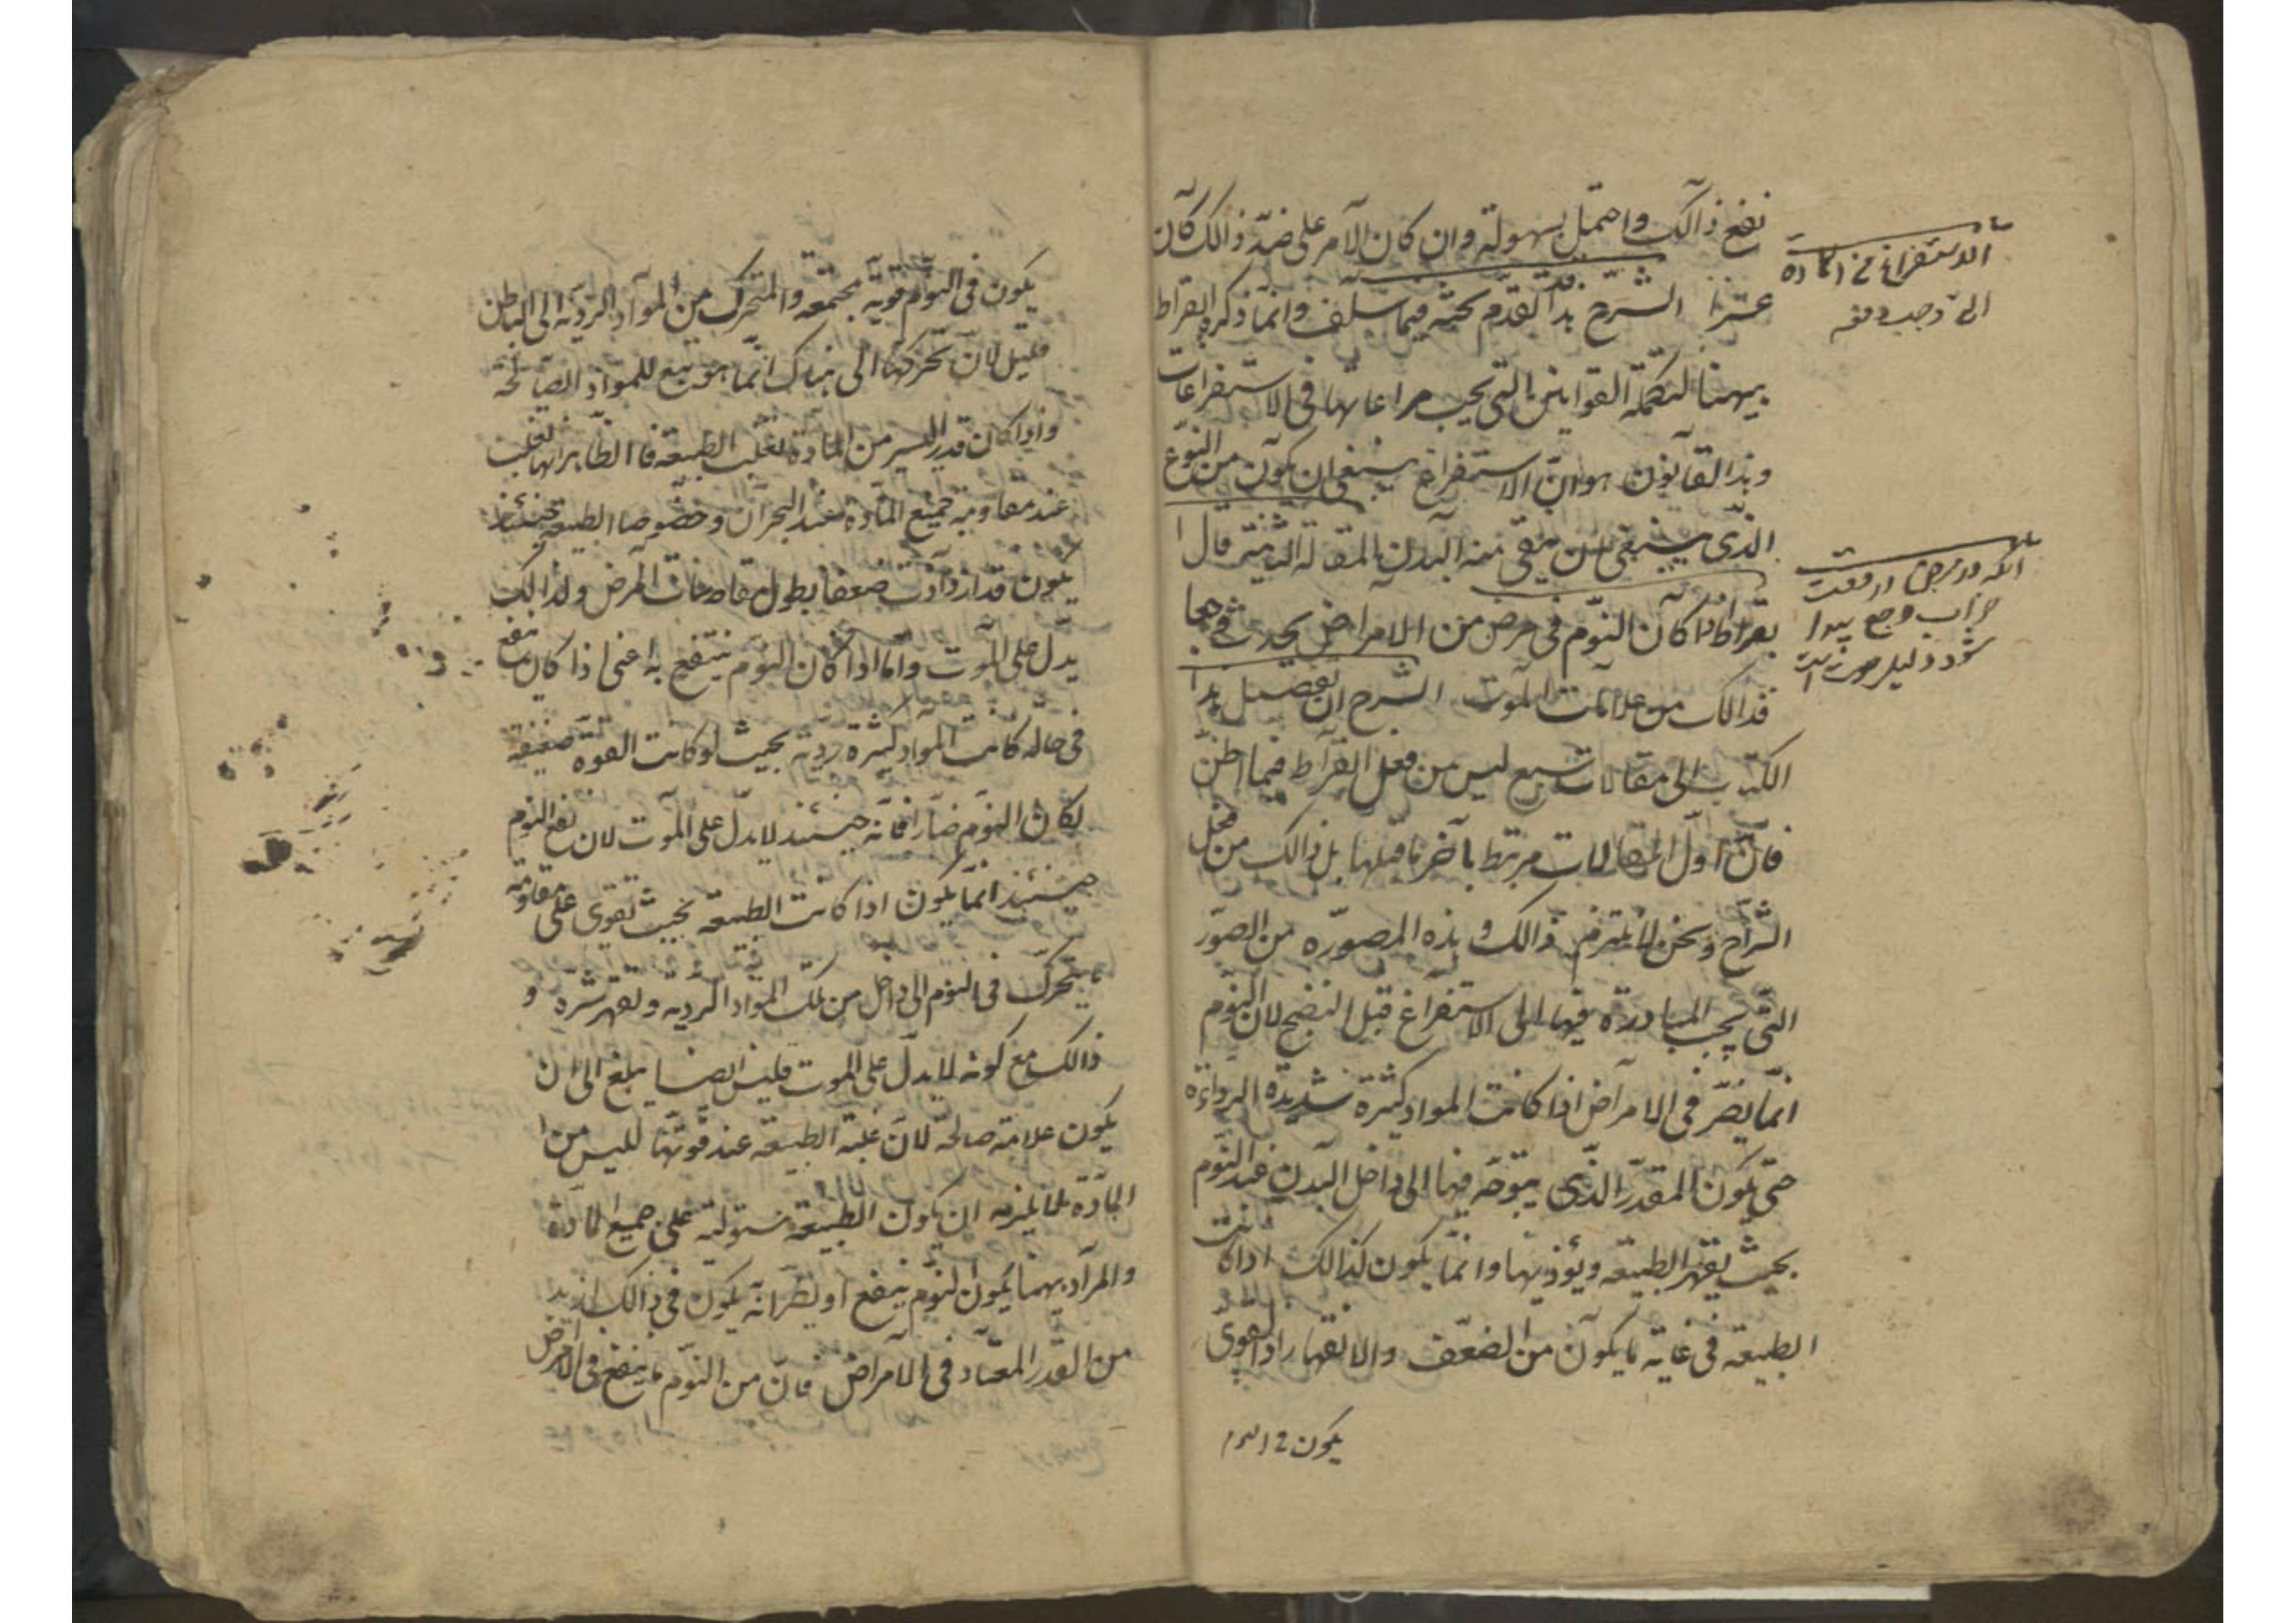 نفع ذالك واحتمل بسهولة وان كان الامر على ضدّ ذالك كان
عسرا الشرح هذا تقدّم بحثه فيما سلف وانما ذكره ابقراط
ههنا لتكملة القوانين التي يجب مراعاتها في الاستفراغات
وهذا القانون هو ان الاستفراغ ينبغي ان يكون من النوع
الذي ينبغي ان ينقى منه البدن المقالة الثانية قال
بقراط اذا كان النوم في مرض من الامراض يحدث وجعا
فذالك من علامات الموت الشرح ان تفصيل هذا
الكتاب الى مقالات سبع ليس من فعل ابقراط فيما اظن
فانّ اول المقالات مرتبط بآخر ما قبلها بل ذالك من فعل
الشراح ونحن لا نلتزم ذالك و هذه المصوره من الصور
التي يجب المبادرة فيها الى الاستفراغ قبل النضج لان النوم
انما يضرّ في الامراض اذا كانت المواد كثيرة شديدة الرداءة
حتى يكون المقدر الذي يتوجه فيها الى داخل البدن عند النوم
بحيث يقهر الطبيعه ويؤذيها وانما يكون كذالك اذا كانت
الطبيعه في غاية ما يكون من الضعف والانقهار اذ القوى
يكون في النوم
الاستفراغ من المادة
انكه در مرض از وقت
خواب وجع پيدا
شود دليل موت است
يكون في النوم قوية مجتمعه والمتحرك من المواد الردية الى الباطن
قليل لان تحركها الى هناك انما هو تبع للمواد الصالحة
واذا كان قدر اليسير من المادة لغلب الطبيعة فالظاهر انها تغلب
عند مقاومة جميع المادة عند البحران وخصوصا الطبيعه حينئذ
يكون قد ازدادت ضعفا بطول مقاومات المرض ولذالك
يدل على الموت واما اذا كان النوم ينتفع به اعنى اذا كان ينفع
في حالة كانت المواد كثيرة ردية بحيث لو كانت القوة ضعيفة
لكان النوم ضارا فانه حينئذ لا يدل على الموت لان نفع النوم
حينئذ انما يكون اذا كانت الطبيعه بحيث تقوى على مقاومة
ما يتحرك في النوم الى داخل من تلك المواد الردية وتقهر شره و
ذالك مع كونه لا يدل على الموت فليس ايضا يبلغ الى ان
يكون علامة صالحة لان غلبة الطبيعة عند قوتها لليس من
المادة لا يلزمه ان يكون الطبيعة مستولية على جميع المادة
والمراد ههنا بكون النوم ينفع او يضر انه يكون في ذالك ازيد
من القدر المعتاد في الامراض فانّ من النوم ما ينفع في الامراض